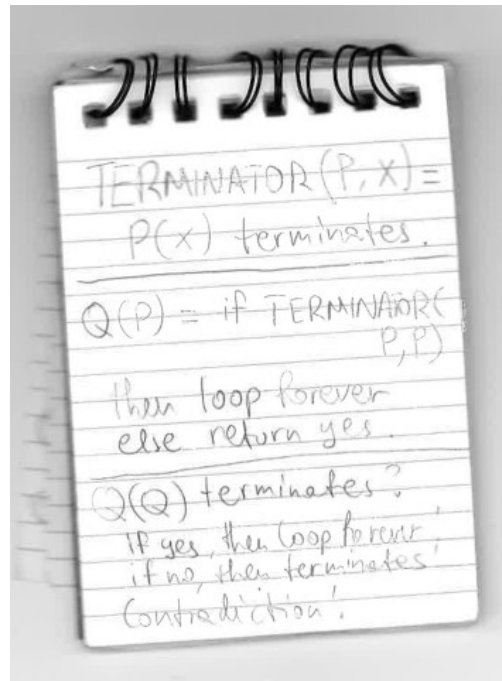 TERMINATOR(P,X)=
P(x) terminates.
Q(P) = if TERMINATOR(
P,P)
then loop forever
else return yes.
Q(Q) terminates?
if yes, then loop forever!
if no, then terminates!
Contradiction!